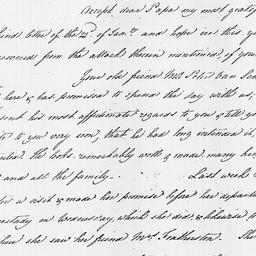 Accept, dear Papa my most grateful
kind letter of the 22d. of Jany. and hope ere this you
recovered from the attack therein mentioned, if you
Your old friend Mrs
here & has promised to spend the day with us,
sent his most affectionate regards to you & tell you
to you very soon, that he had long intended it,
He looks remarkably well & made many he
and all the family. . Last week
a visit & made her promise before her depart
on Wednesday, which she did & likewise
when she saw her friend Mrs. Featherston. She